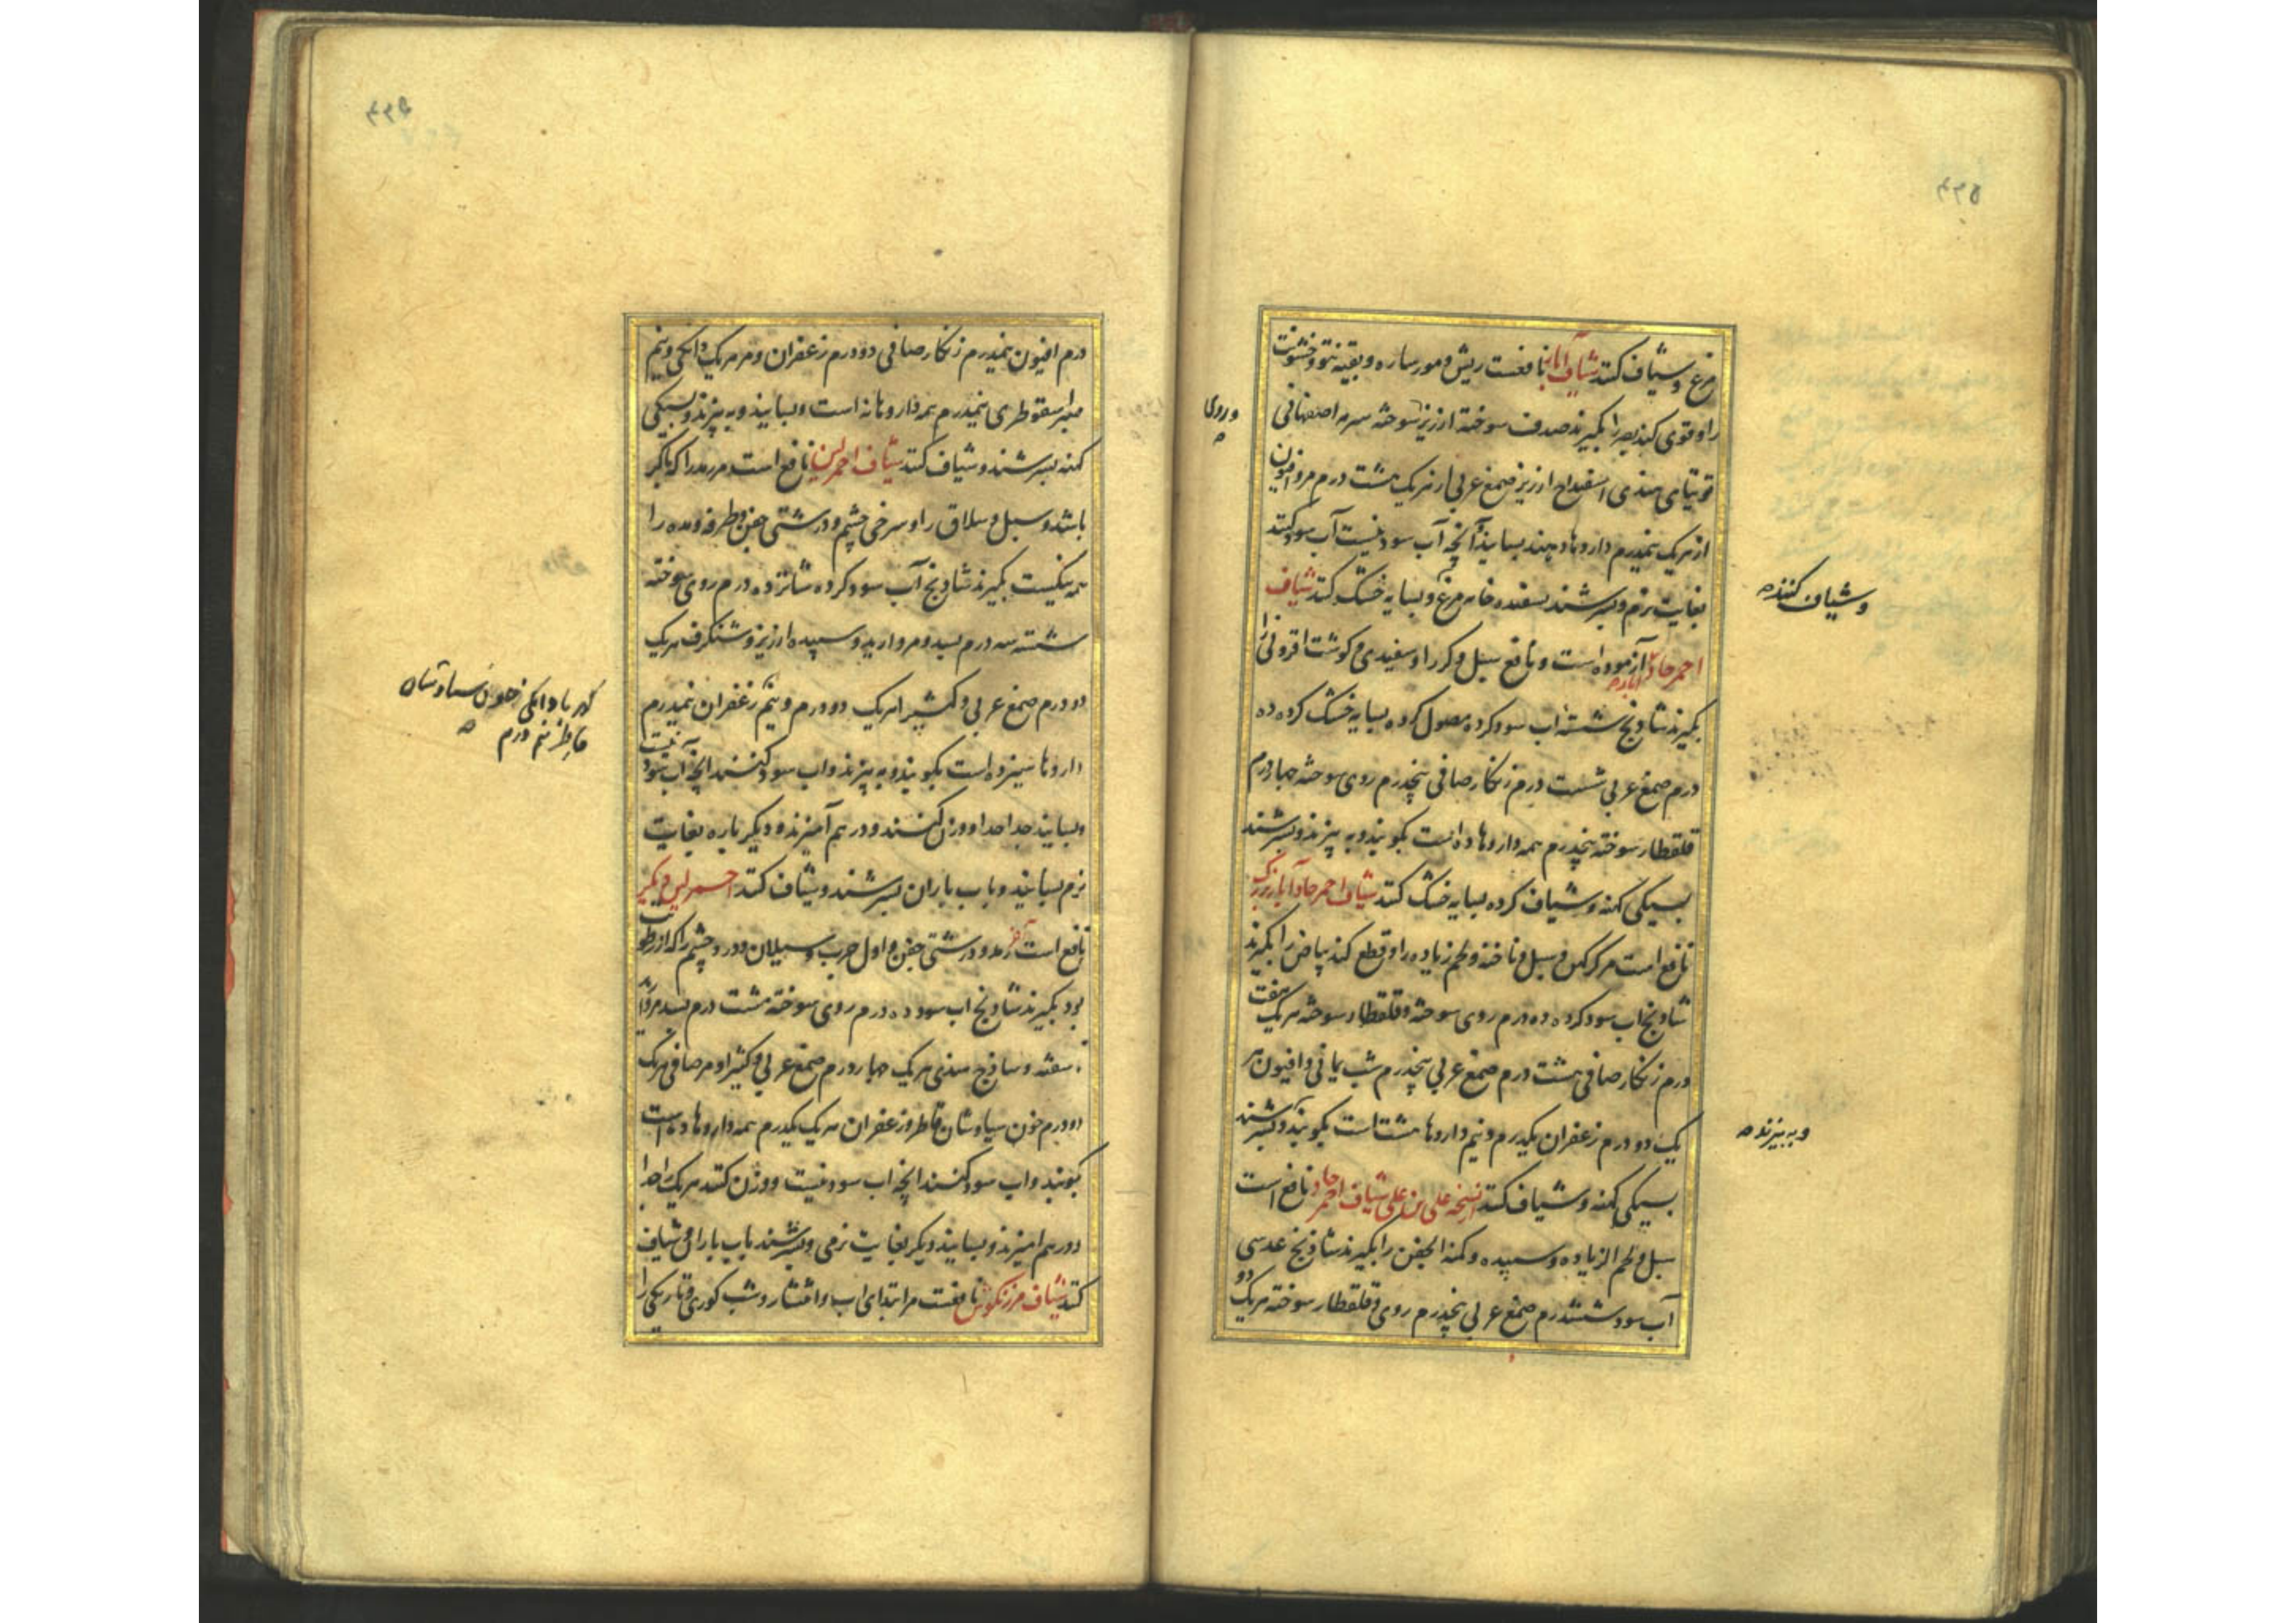 مرغ و شیاف کنند شیاف آبار نافعست ریش و مورساره و بقیه نتو و خشونت
را و قوی کند بصر را بگیرند صدف سوخته ارزیز سوخته سرمه اصفهانی
توتیای هندی اسفیداج ارزیز صمغ عربی از هریک هشت درم مر و افیون
از هریک نیمدرم داروها بسایند آنچه آب سود نیست آب سود کنند
بغایت نرم و بسرشند بسفیده خایه مرغ و بسایه خشک کنند شیاف
احمر حاد آزموده است و نافع سبل و کر را و سفیدی و گوشت افزونی را
بگیرند شادنج شسته اب سود کرده مصول کرده بسایه خشک کرده ده
درم صمغ عربی شست درم زنگار صافی پنجدرم روی سوخته چهاردرم
قلقطار سوخته پنجدرم همه داروها ده است بکوبند و به بیزند و بسرشند
بسیکی کهنه و شیاف کرده بسایه خشک کنند شیاف احمر حاد آبار بزرگ
نافع است مر کمن و سبل و ناخنه و لحم زیاده را و قطع کند بیاض را بگیرند
شادنج اب سود کرده ده درم روی سوخته و قلقطار سوخته هریک هفت
درم زنگار صافی هشت درم صمغ عربی پنجدرم شب یمانی و افیون هر
یک دو درم زعفران یکدرم و نیم داروها هشتاست بکوبند و بسرشند
بسیکی کهنه و شیاف کنند نسخه علی بن علی شیاف احمر حاد نافع است
سبل و لحم الزیاده و سپیده و کمنه الجفن را بگیرند شادنج عدسی
آب سود ششدرم صمغ عربی پنجدرم روی و قلقطار سوخته هریک دو
و روی
و شیاف کنند
و به بیزند
درم افیون نیمدرم زنگار صافی دو درم زعفران و مر هریک دانکی و نیم
صبر اسقوطری نیمدرم همه داروها نه است و بسایند و به بیزند و بسیکی
کهنه بسرشند و شیاف کنند شیاف احمر لین نافع است مر رمد را که باکر
باشد و سبل و سلاق را و سرخی چشم و درشتی جفن و طرفه و وده را
همه نیکیست بگیرند شادنج آب سود کرده شانزده درم روی سوخته
شسته سه درم بسد و مروارید و سپیده ارزیز و شنگرف هریک
دو درم صمغ عربی و کثیرا هریک دو درم و نیم زعفران نیمدرم
داروها سیزده است بکوبند و به بیزند و اب سود کنند انچه اب سود نیست
و بسایند جدا جدا و وزن کنند و در هم آمیزند و دیگر باره بغایت
نرم بسایند و باب باران بسرشند و شیاف کنند احمر لین دیگر
نافع است آخر رمد و درشتی جفن و اول جرب و سیلان و درد چشم را که از رطوبت
بود بگیرند شادنج اب سود ده درم روی سوخته هشت درم بسد مروارید
سفته و ساذج هندی هریک چهاردرم صمغ عربی و کثیرا و مر صافی هریک
دو درم خون سیاوشان قاطر و زعفران هریک یکدرم همه داروها ده است
بکوبند و اب سود کنند انچه اب سود نیست و وزن کنند هریک را جدا
و در هم امیزند و بسایند دیگر بغایت نرمی و بسرشند باب باران و شیاف
کنند شیاف مرزنکوش نافعست مر ابتدای اب و انتشار و شب کوری و تاریکی را
قاطر نیم درم